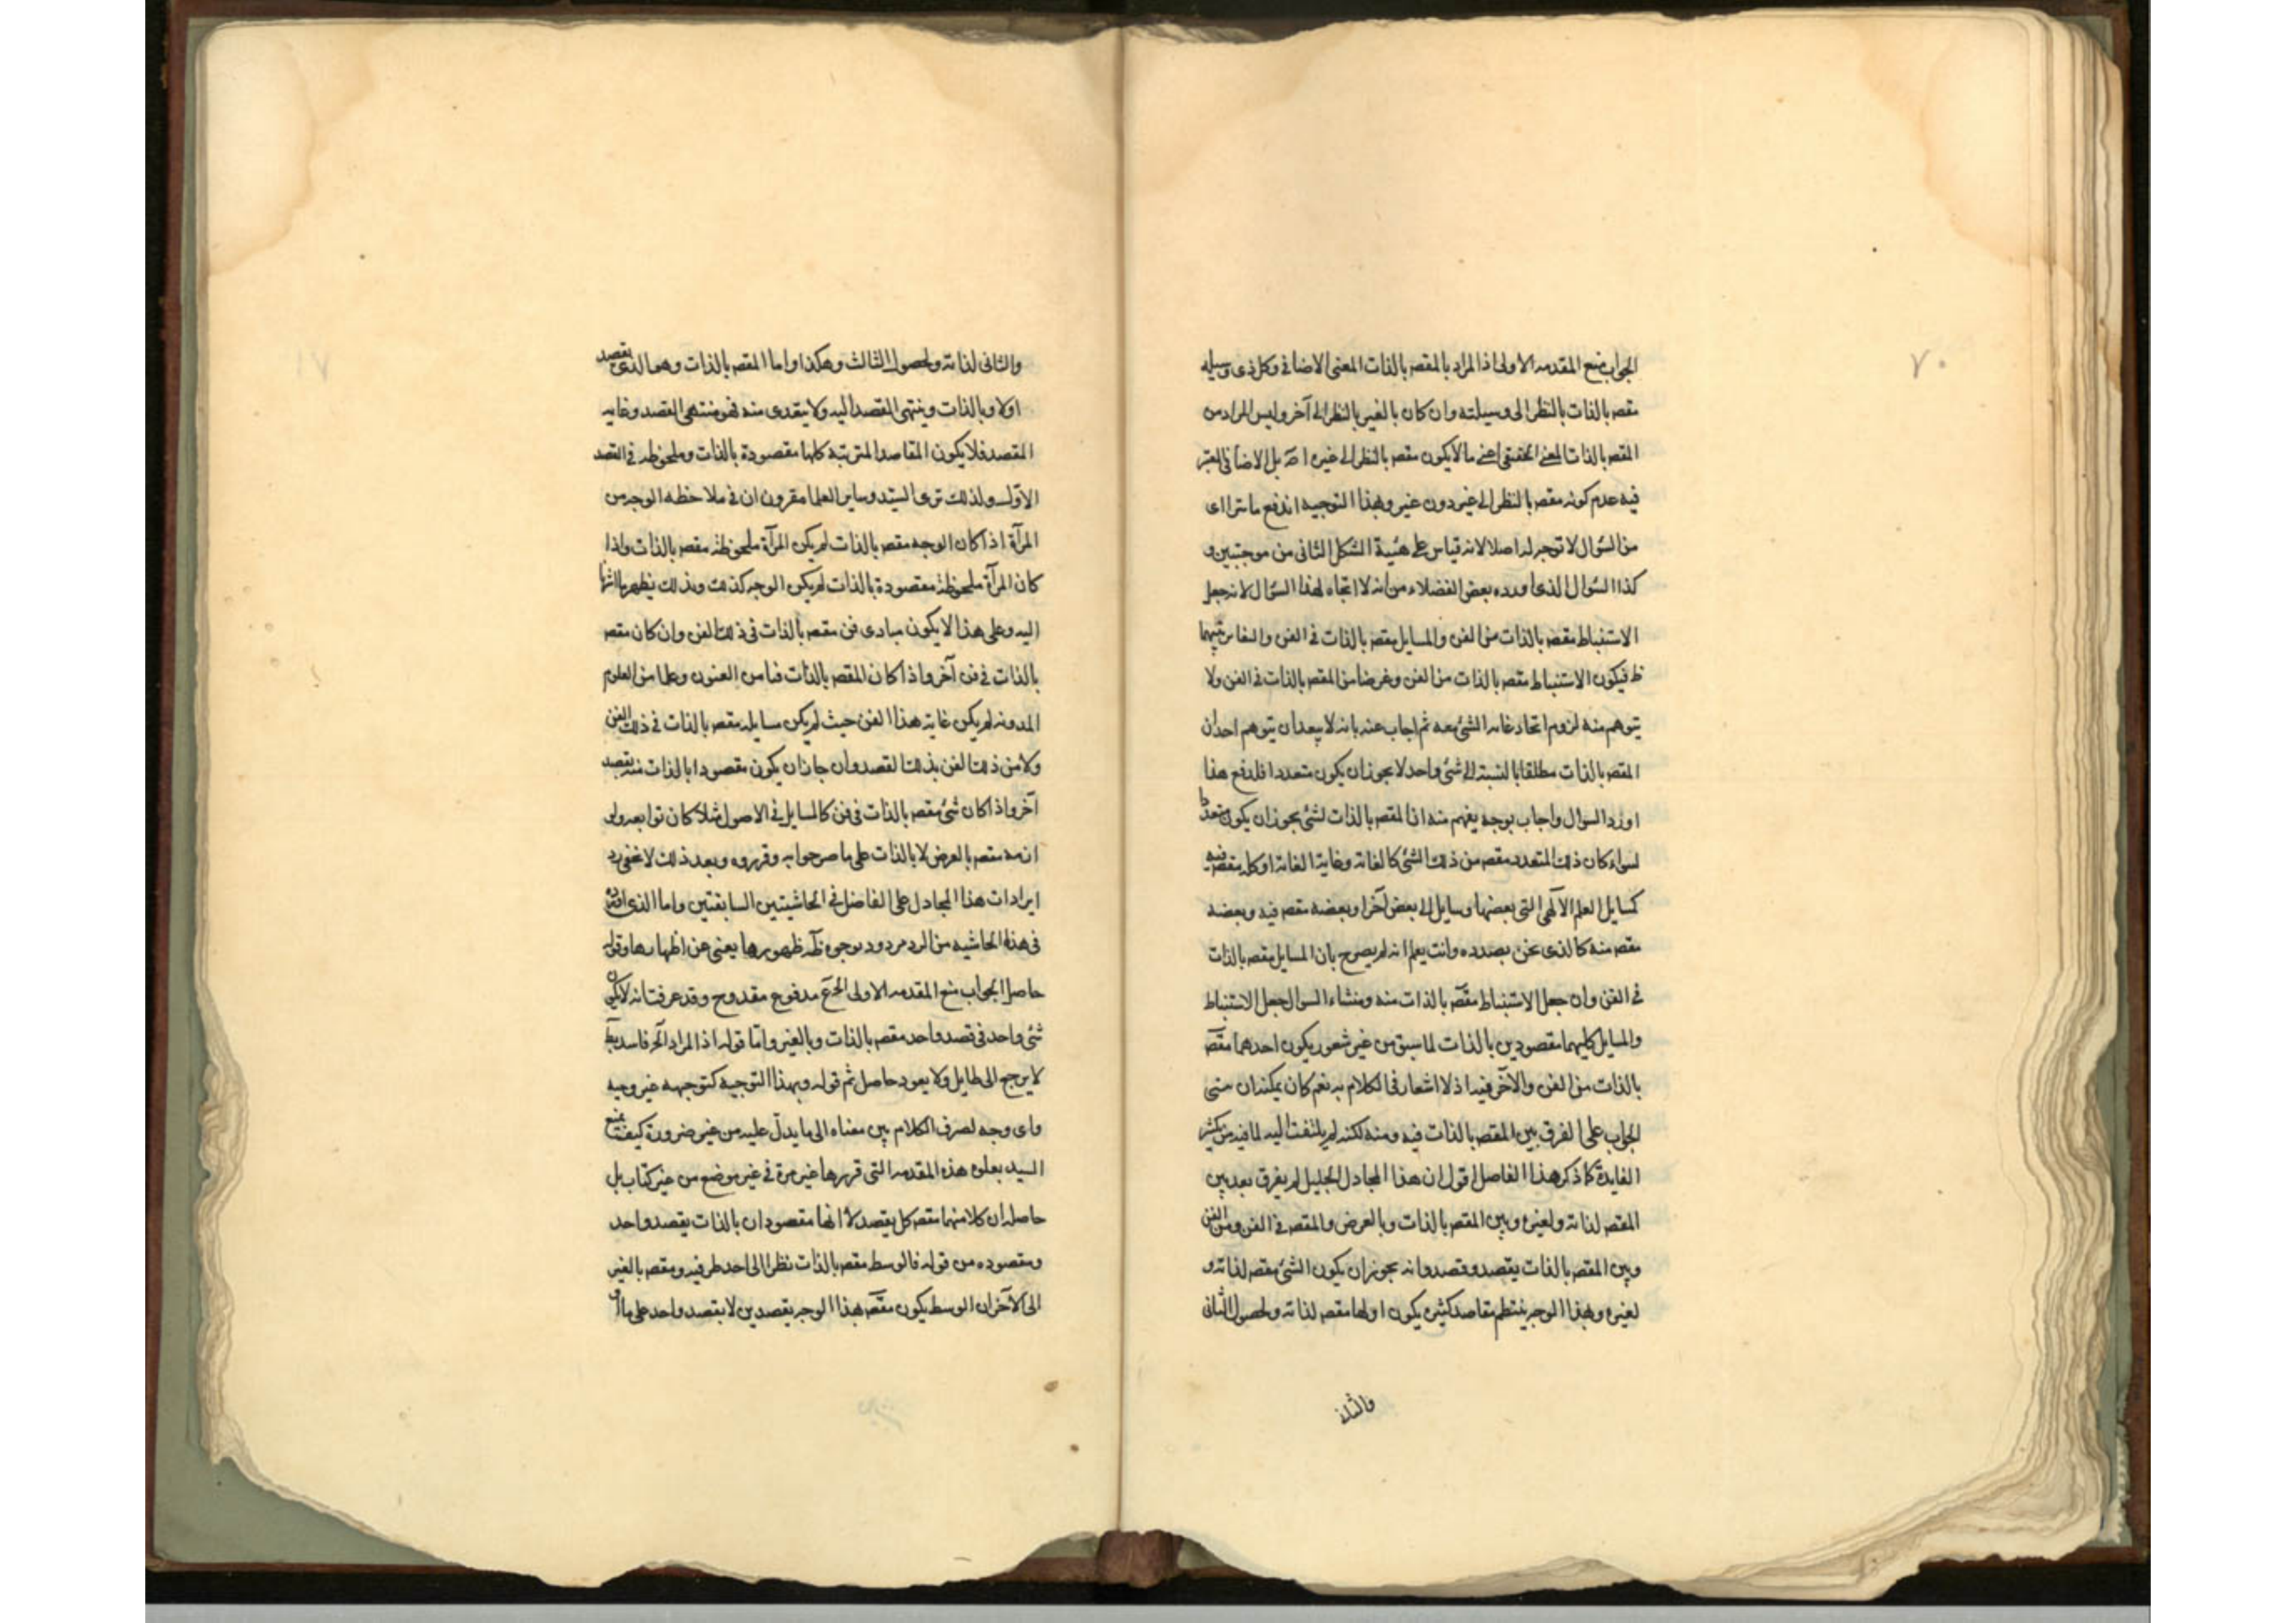 ٧٠
الجواب منع المقدمه الاولى اذا المراد بالمقصر بالذات المعنى الاضافى وكل ذى وسيله
مقصر بالذات بالنظر الى وسيلته وان كان بالغير بالنظر الى آخر وليس المراد من
المقصر بالذات المعنى الحقيقى اعنى ما لا يكون مقصر بالنظر الى غيره اصّه بل الاضافى المعتبر
فيه عدم كونه مقصر بالنظر الى غير دون غير وبهذا التوجيه اندفع ما تراى
من السؤال لا توجه له اصلا لانه قياس على هيئة الشكل الثانى من موجبتين و
كذا السؤال الذى اورده بعض الفضلاء من انه لا اتجاه لهذا السؤال لانه جعل
الاستنباط مقصر بالذات من الفن والمسايل مقصر بالذات فى الفن والفارق بينهما
ظ فيكون الاستنباط مقصر بالذات من الفن وغرضا من المقصر بالذات فى الفن ولا
يتوهم منه لزوم اتحاد غايه الشئ معه ثم اجاب عنه بانه لا يبعد ان يتوهم احد ان
المقصر بالذات مطلقا بالنسبة الى شئ واحد لا يجوز ان يكون متعددا فلدفع هذا
اورد السوال واجاب بوجه يفهم منه ان المقصر بالذات لشئ يجوز ان يكون متعددا
لسواء كان ذلك المتعدد مقصر من ذلك الشئ كالغاية وغاية الغاية او كله مقصر فيه
كمسايل العلم الآلهى التى بعضها وسايل الى بعض آخر او بعضه مقصر فيه وبعضه
مقصر منه كالذى نحن بصدده وانت يعلم انه لم يصرح بان المسايل مقصر بالذات
فى الفن وان جعل الاستنباط مقصّر بالذات منه ومنشاء السوال جعل الاستنباط
والمسايل كليهما مقصودين بالذات لما سبق من غير شعور يكون احدهما مقصّر
بالذات من الفن والآخر فيه اذ لا اشعار فى الكلام به نعم كان يمكنه ان يبنى
الجواب على الفرق بين المقصر بالذات فيه ومنه لكنه لم يلتفت اليه لما فيه من تكثير
الفايدة كما ذكر هذا الفاصل اقول ان هذا المجادل الجليل لم يفرق بعد بين
المقصر لذاته ولغيره وبين المقصر بالذات وبالعرض والمقصر فى الفن ومن الفن
وبين المقصر بالذات بقصد وقصد وانه يجوز ان يكون الشئ مقصر لذاته و
لغيره وبهذا الوجه ينتظم مقاصد كثيره يكون اولها مقصر لذاته ولحصول الثانى
والثانى
٧١
والثانى لذاته ولحصول الثالث وهكذا واما المقصر بالذات وهو الذى يقصد
اولا وبالذات وينتهى القصد اليه ولا يتعدى منه فهو منتهى القصد وغايه
المقصد فلا يكون المقاصد المترتبه كلها مقصودة بالذات وملحوظه فى القصد
الاوّل ولذلك ترى السيّد وساير العلما مقرون ان فى ملاحظه الوجه من
المرآة اذا كان الوجه مقصر بالذات لم يكن المرآة ملحوظة مقصر بالذات واذا
كان المرآة ملحوظة مقصودة بالذات لم يكن الوجه كذلك وبذلك يظهر ما اشرنا
اليه وعلى هذا لا يكون مبادى فن مقصر بالذات فى ذلك الفن وان كان مقصر
بالذات فى فن آخر واذا كان المقصر بالذات فنا من الفنون وعلما من العلوم
المدونه لم يكن غاية هذا الفن حيث لم يكن مسايله مقصر بالذات فى ذلك الفن
ولا من ذلك الفن بذلك القصد وان جاز ان يكون مقصودا بالذات منه بقصد
آخر واذا كان شئ مقصر بالذات فى فن كالمسايل فى الاصول مثلا كان توابعه ولو
انه مقصر بالعرض لا بالذات على ما صرحوا به وقرروه وبعد ذلك لا تخفى رد
ايرادات هذا المجادل على الفاضل فى الحاشيتين السابقتين واما الذى افاده
فى هذه الحاشيه من الرد مردود بوجوه ظّه ظهورها يغنى عن اظهارها وقوله
حاصل الجواب منع المقدمه الاولى الخ مدفوع مقدوح وقد عرفت انه لا يكون
شئ واحد فى قصد واحد مقصر بالذات وبالغير وامّا قوله اذا المراد الخ فاسد
لا يرجع الى طايل ولا يعود حاصل ثم قوله وبهذا التوجيه كتوجيهه غير وجيه
واى وجه لصرف الكلام بين معناه الى ما يدلّ عليه من غير ضرورة كيف يمنع
السيد بعلوه هذه المقدمه التى قررها غير مرة فى غير موضع من غير كتاب بل
حاصله ان كلا منهما مقصر كل بقصد لا انهما مقصودان بالذات بقصد واحد
ومقصوده من قوله فالوسط مقصر بالذات نظرا الى احد طرفيه ومقصر بالغير
الى الآخر ان الوسط يكون مقصّر بهذا الوجه بقصدين لا بقصد واحد على ما